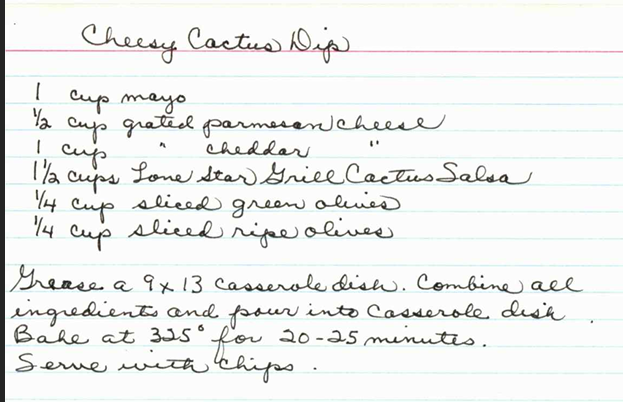 Cheesy Cactus Dip
1 cup mayo
1/2 cup grated parmesan cheese
1 cup " cheddar "
1 1/2 cups Lone Star Grill Cactus Salsa
1/4 cup sliced green olives
1/4 cup sliced ripe olives
Grease a 9x13 casserole dish. Combine all
ingredients and pour into casserole dish.
Bake at 325° for 20-25 minutes.
Serve with chips.